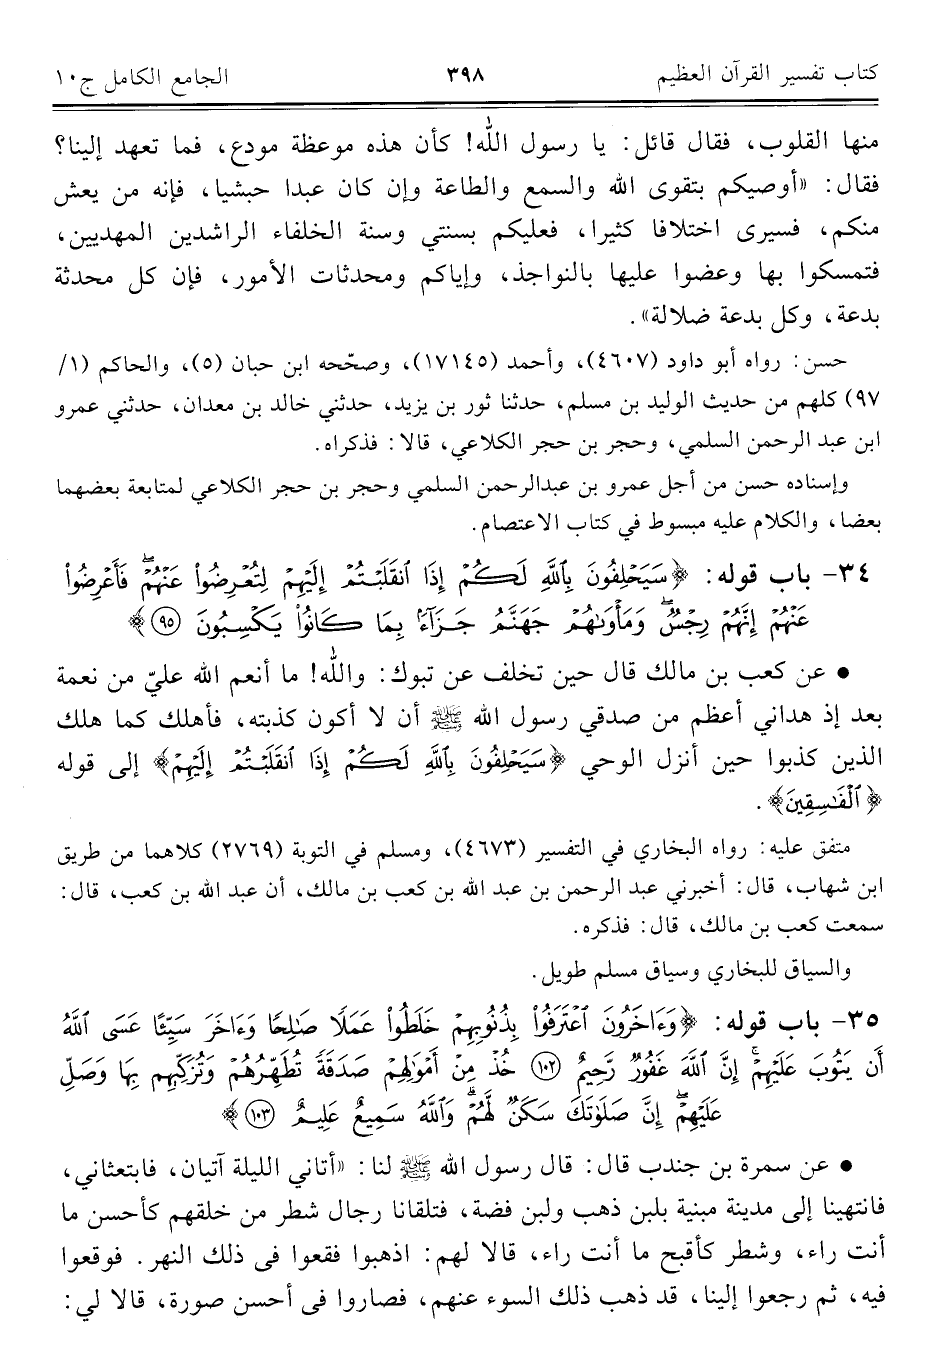 كتاب تفسير القرآن العظيم ٣٩٨ الجامع الكامل ج١٠
منها القلوب، فقال قائل: يا رسول الله! كأن هذه موعظة مودع، فما تعهد إلينا؟
فقال: «أوصيكم بتقوى الله والسمع والطاعة وإن كان عبدا حبشيا، فإنه من يعش
منكم، فسيرى اختلافا كثيرا، فعليكم بسنتي وسنة الخلفاء الراشدين المهديين،
فتمسكوا بها وعضوا عليها بالنواجذ، وإياكم ومحدثات الأمور، فإن كل محدثة
بدعة، وكل بدعة ضلالة».
حسن: رواه أبو داود (٤٦٠٧)، وأحمد (١٧١٤٥)، وصحّحه ابن حبان (٥)، والحاكم (١/
٩٧) كلهم من حديث الوليد بن مسلم، حدثنا ثور بن يزيد، حدثني خالد بن معدان، حدثني عمرو
ابن عبد الرحمن السلمي، وحجر بن حجر الكلاعي، قالا: فذكراه.
وإسناده حسن من أجل عمرو بن عبدالرحمن السلمي وحجر بن حجر الكلاعي لمتابعة بعضهما
بعضا، والكلام عليه مبسوط في كتاب الاعتصام.
٣٤- باب قوله: ﴿سَيَحْلِفُونَ بِاللَّهِ لَكُمْ إِذَا ٱنقَلَبْتُمْ إِلَيْهِمْ لِتُعْرِضُوا۟ عَنْهُمْ ۖ فَأَعْرِضُوا۟
عَنْهُمْ إِنَّهُمْ رِجْسٌ ۖ وَمَأْوَىٰهُمْ جَهَنَّمُ جَزَآءًۢ بِمَا كَانُوا۟ يَكْسِبُونَ ۝٩٥﴾
• عن كعب بن مالك قال حين تخلف عن تبوك: والله! ما أنعم الله عليّ من نعمة
بعد إذ هداني أعظم من صدقي رسول الله ﷺ أن لا أكون كذبته، فأهلك كما هلك
الذين كذبوا حين أنزل الوحي ﴿سَيَحْلِفُونَ بِاللَّهِ لَكُمْ إِذَا ٱنقَلَبْتُمْ إِلَيْهِمْ﴾ إلى قوله
﴿ٱلْفَٰسِقِينَ﴾.
متفق عليه: رواه البخاري في التفسير (٤٦٧٣)، ومسلم في التوبة (٢٧٦٩) كلاهما من طريق
ابن شهاب، قال: أخبرني عبد الرحمن بن عبد الله بن كعب بن مالك، أن عبد الله بن كعب، قال:
سمعت كعب بن مالك، قال: فذكره.
والسياق للبخاري وسياق مسلم طويل.
٣٥- باب قوله: ﴿وَءَاخَرُونَ ٱعْتَرَفُوا۟ بِذُنُوبِهِمْ خَلَطُوا۟ عَمَلًا صَٰلِحًا وَءَاخَرَ سَيِّئًا عَسَى ٱللَّهُ
أَن يَتُوبَ عَلَيْهِمْ ۚ إِنَّ ٱللَّهَ غَفُورٌ رَّحِيمٌ ۝١٠٢ خُذْ مِنْ أَمْوَٰلِهِمْ صَدَقَةً تُطَهِّرُهُمْ وَتُزَكِّيهِم بِهَا وَصَلِّ
عَلَيْهِمْ ۖ إِنَّ صَلَوٰتَكَ سَكَنٌ لَّهُمْ ۗ وَٱللَّهُ سَمِيعٌ عَلِيمٌ ۝١٠٣﴾
• عن سمرة بن جندب قال: قال رسول الله ﷺ لنا: «أتاني الليلة آتيان، فابتعثاني،
فانتهينا إلى مدينة مبنية بلبن ذهب ولبن فضة، فتلقانا رجال شطر من خلقهم كأحسن ما
أنت راء، وشطر كأقبح ما أنت راء، قالا لهم: اذهبوا فقعوا فى ذلك النهر. فوقعوا
فيه، ثم رجعوا إلينا، قد ذهب ذلك السوء عنهم، فصاروا فى أحسن صورة، قالا لي: